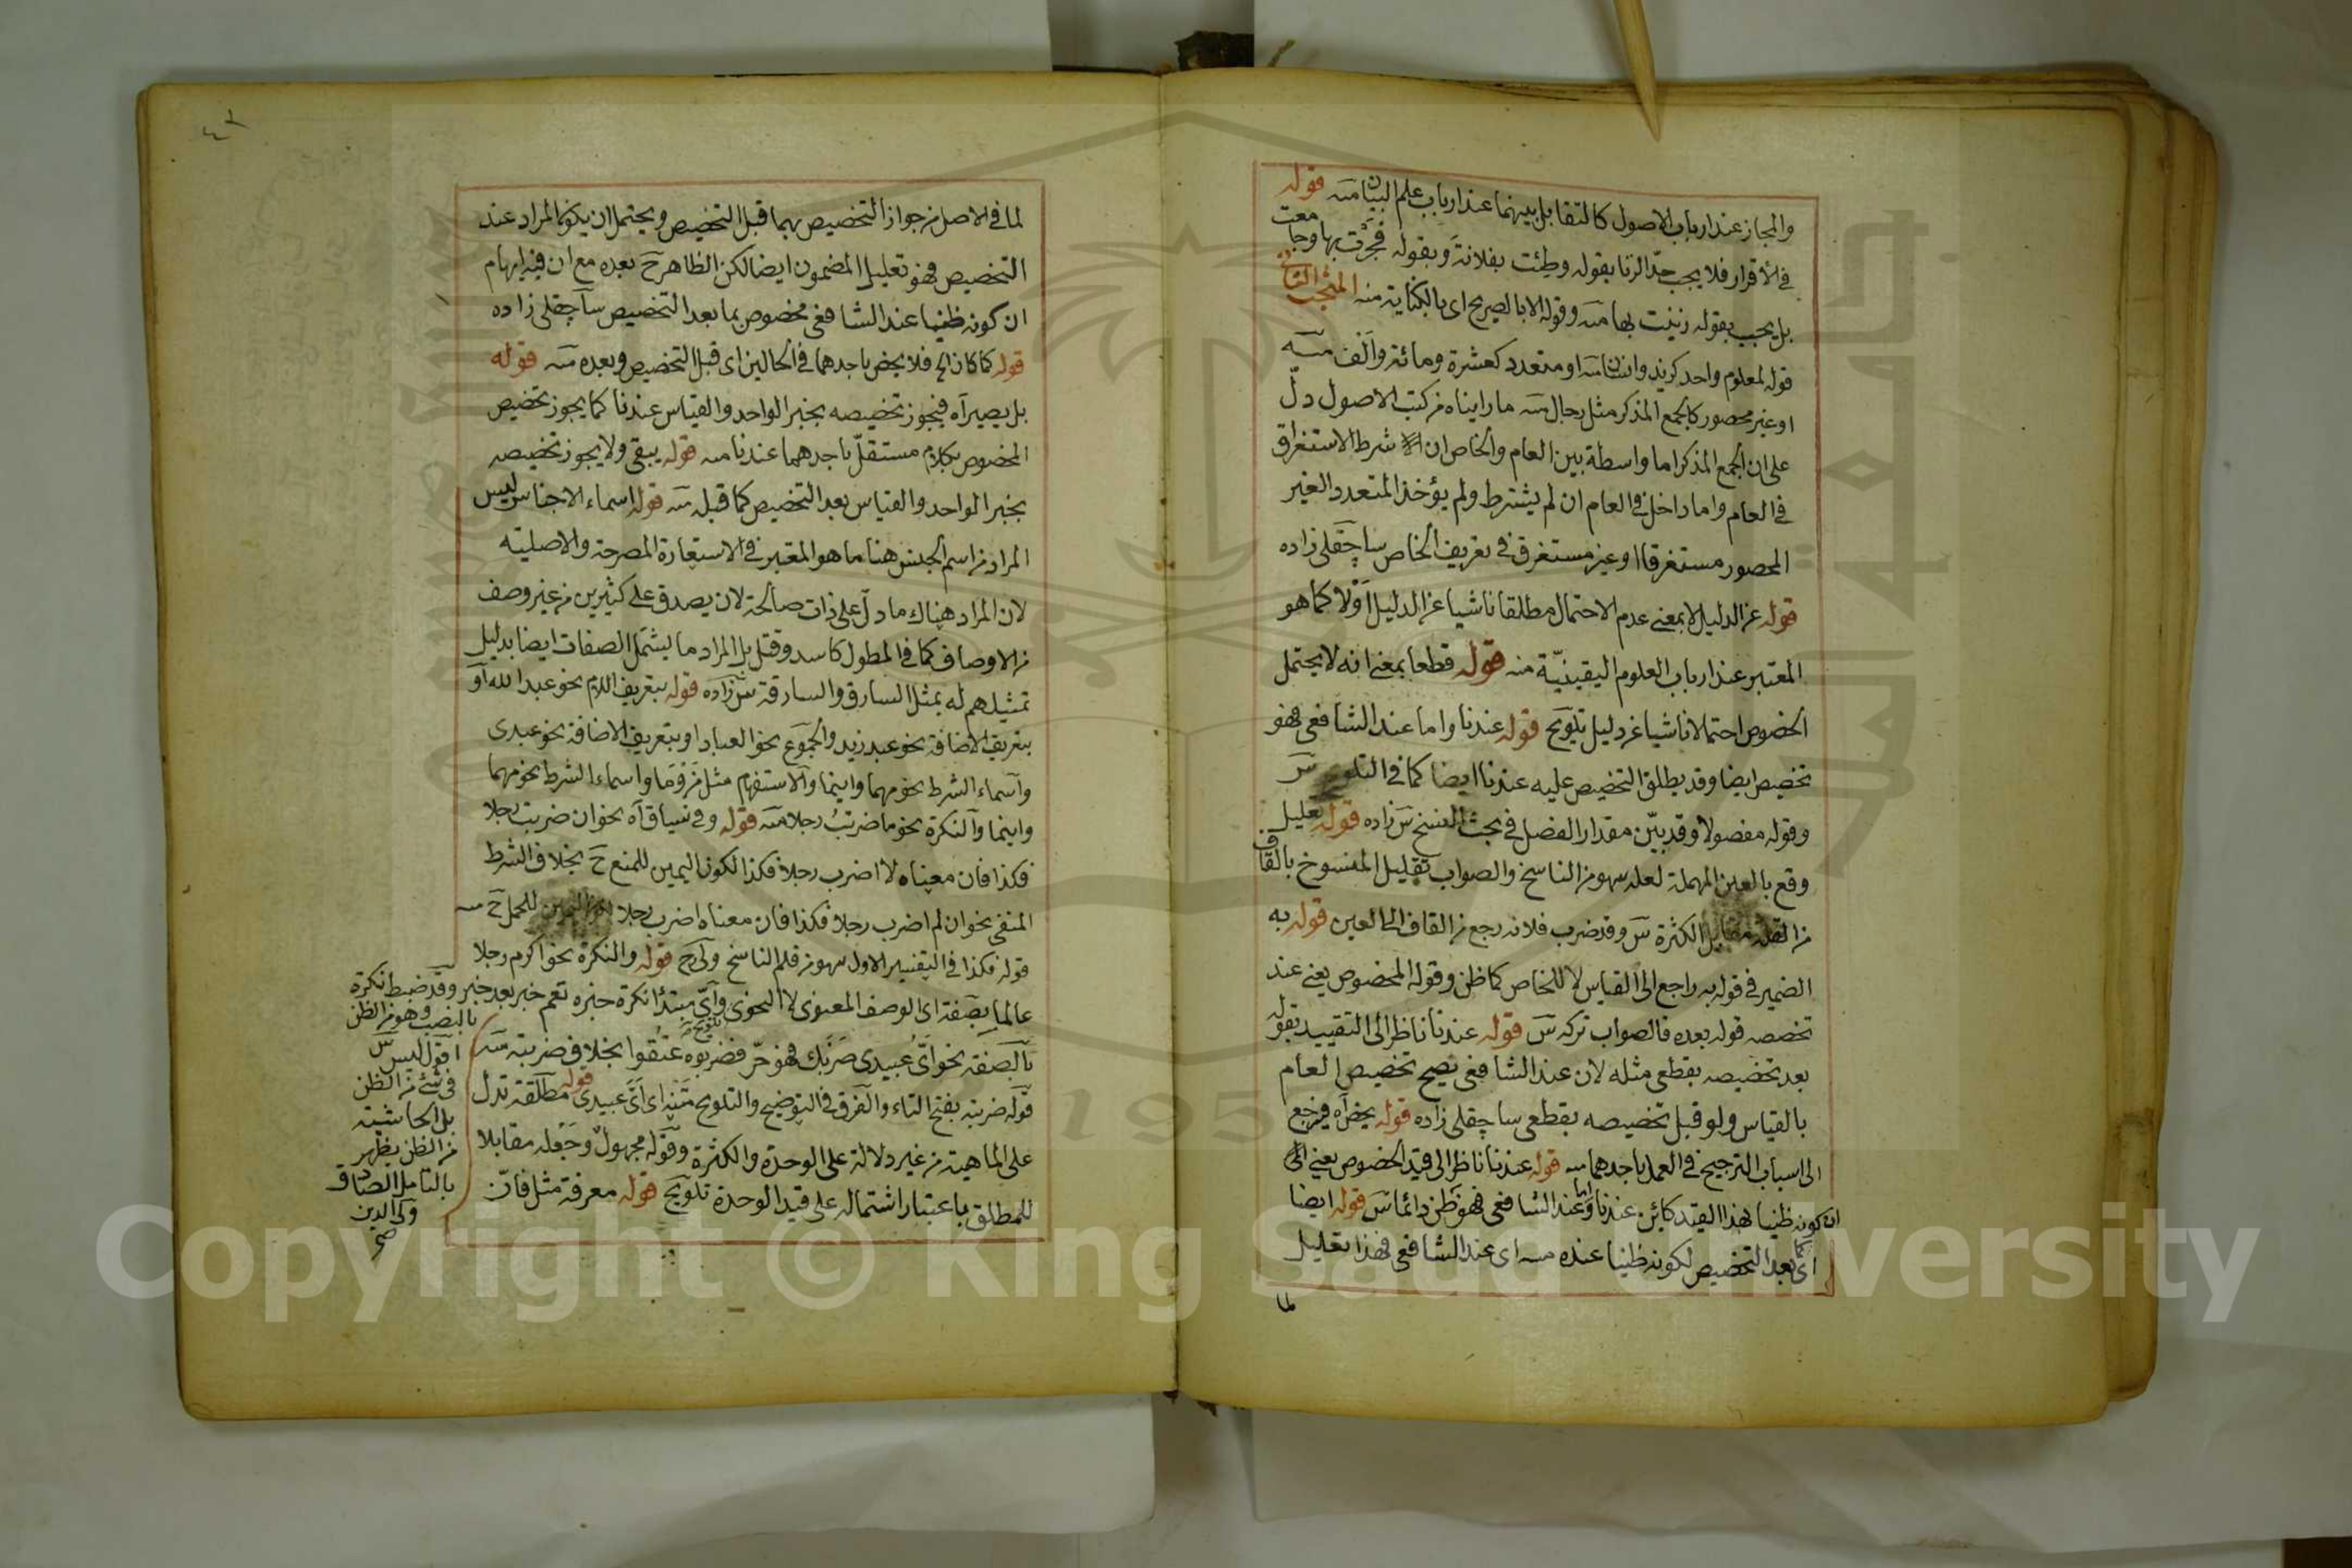 والمجاز عند ارباب الاصول كالتقابل بينهما عند ارباب علم البيان منه قوله
في الأقرار فلا يجب حدّ الزنا بقوله وطئت بفلانة وبقوله فجرت بها وجامعت
بل يجب بقوله زنيت بها منه وقوله الا بالصريح اى بالكناية منه المبحث الثانى
قوله لمعلوم واحد كزيد وانسان منه او متعدد كعشرة ومائة والف منه
او غير محصور كالجمع المذكر مثل رجال منه ما رايناه من كتب الاصول دلّ
على ان الجمع المذكر اما واسطة بين العام والخاص ان شرط الاستغراق
في العام واما داخل في العام ان لم يشترط ولم يؤخذ المتعدد الغير
المحصور مستغرقا او غير مستغرق في تعريف الخاص ساچقلى زاده
قوله عن الدليل لا بمعنى عدم الاحتمال مطلقا ناشيا عن الدليل اوْلا كما هو
المعتبر عند ارباب العلوم اليقينيّة منه قوله قطعا بمعنى انه لا يحتمل
الخصوص احتمالا ناشيا عن دليل تلويح قوله عندنا واما عند الشافعى فهو
تخصيص ايضا وقد يطلق التخصيص عليه عندنا ايضا كما في التلويح س
وقوله مفصولا وقد بيّن مقدار الفصل في بحث النسخ س زاده قوله تعليل
وقع بالعين المهملة لعله سهو من الناسخ والصواب تقليل المنسوخ بالقاف
من القلة مقابل الكثرة س وقد ضرب فلانه رجع من القاف الى العين قوله به
الضمير في قوله به راجع الى القياس لا للخاص كما ظن وقوله المخصوص يعنى عند
تخصصه قوله بعده فالصواب تركه س قوله عندنا ناظر الى التقييد بقوله
بعد تخصيصه بقطعى مثله لان عند الشافعى يصح تخصيص العام
بالقياس ولو قبل تخصيصه بقطعى ساچقلى زاده قوله يخص آه فيرجع
الى اسباب الترجيح في العمل باحدهما منه قوله عندنا ناظر الى قيد الخصوص يعنى الى
ان كونه ظنيا بهذا القيد كائن عندنا واما عند الشافعى فهو ظن دائما س قوله ايضا
اى كما بعد التخصيص لكونه ظنيا عنده منه اى عند الشافعى فهذا تعليل
لما
٤٢
لما في الاصل من جواز التخصيص بهما قبل التخصيص ويحتمل ان يكون المراد عند
التخصيص فهو تعليل المضمون ايضا لكن الظاهر ح بعده مع ان فيه ايهام
ان كونه ظنيا عند الشافعى مخصوص بما بعد التخصيص ساچقلى زاده
قوله كما كان الخ فلا يخص باحدهما في الحالين اى قبل التخصيص وبعده منه قوله
بل يصير آه فيجوز تخصيصه بخبر الواحد والقياس عندنا كما يجوز تخصيص
المخصوص بكلام مستقلّ باحدهما عندنا منه قوله يبقى ولا يجوز تخصيصه
بخبر الواحد والقياس بعد التخصيص كما قبله منه قوله اسماء الاجناس ليس
المراد من اسم الجنس هنا ما هو المعتبر في الاستعارة المصرحة والاصلية
لان المراد هناك ما دلّ على ذات صالحة لان يصدق على كثيرين من غير وصف
من الاوصاف كما في المطول كاسد وقتل بل المراد ما يشتمل الصفات ايضا بدليل
تمثيلهم له بمثل السارق والسارقة س زاده قوله بتعريف اللام نحو عبد الله او
بتعريف الاضافة نحو عبد زيد والجموع نحو العباد او بتعريف الاضافة نحو عبدى
واسماء الشرط نحو مهما واينما والاستفهام مثل من وما واسماء الشرط نحو مهما
واينما والنكرة نحو ما ضربت رجلا منه قوله وفي سياق آه نحو ان ضربت رجلا
فكذا فان معناه لا اضرب رجلا فكذا لكون اليمين للمنع ح بخلاف الشرط
المنفى نحو ان لم اضرب رجلا فكذا فان معناه اضرب رجلا لكون اليمين للحمل ح منه
قوله فكذا في التفسير الاول سهو من قلم الناسخ ولى ح قوله والنكرة نحو اكرم رجلا
عالما بصفة اى الوصف المعنوى لا النحوى واىّ مبتدأ نكرة خبره تعم خبر بعد خبر وقد ضبط نكرة
بالصفة نحو اىّ عبيدى ضربك فهو حرّ فضربوه عتقوا بخلاف ضربته منه
قوله ضربته بفتح التاء والفرق في التوضيح والتلويح منه اى اىّ عبيدى قوله مطلقة تدل
على الماهية من غير دلالة على الوحدة والكثرة وقوله مجهول وجعله مقابلا
للمطلق باعتبار اشتماله على قيد الوحدة تلويح قوله معرفة مثل فانّ
بالنصب وهو من الظن
اقول ليس
في شئ من الظن
بل الحاشية
من الظن يظهر
بالتامل الصادق
ولى الدين
صح
Copyright © King Saud University
1957